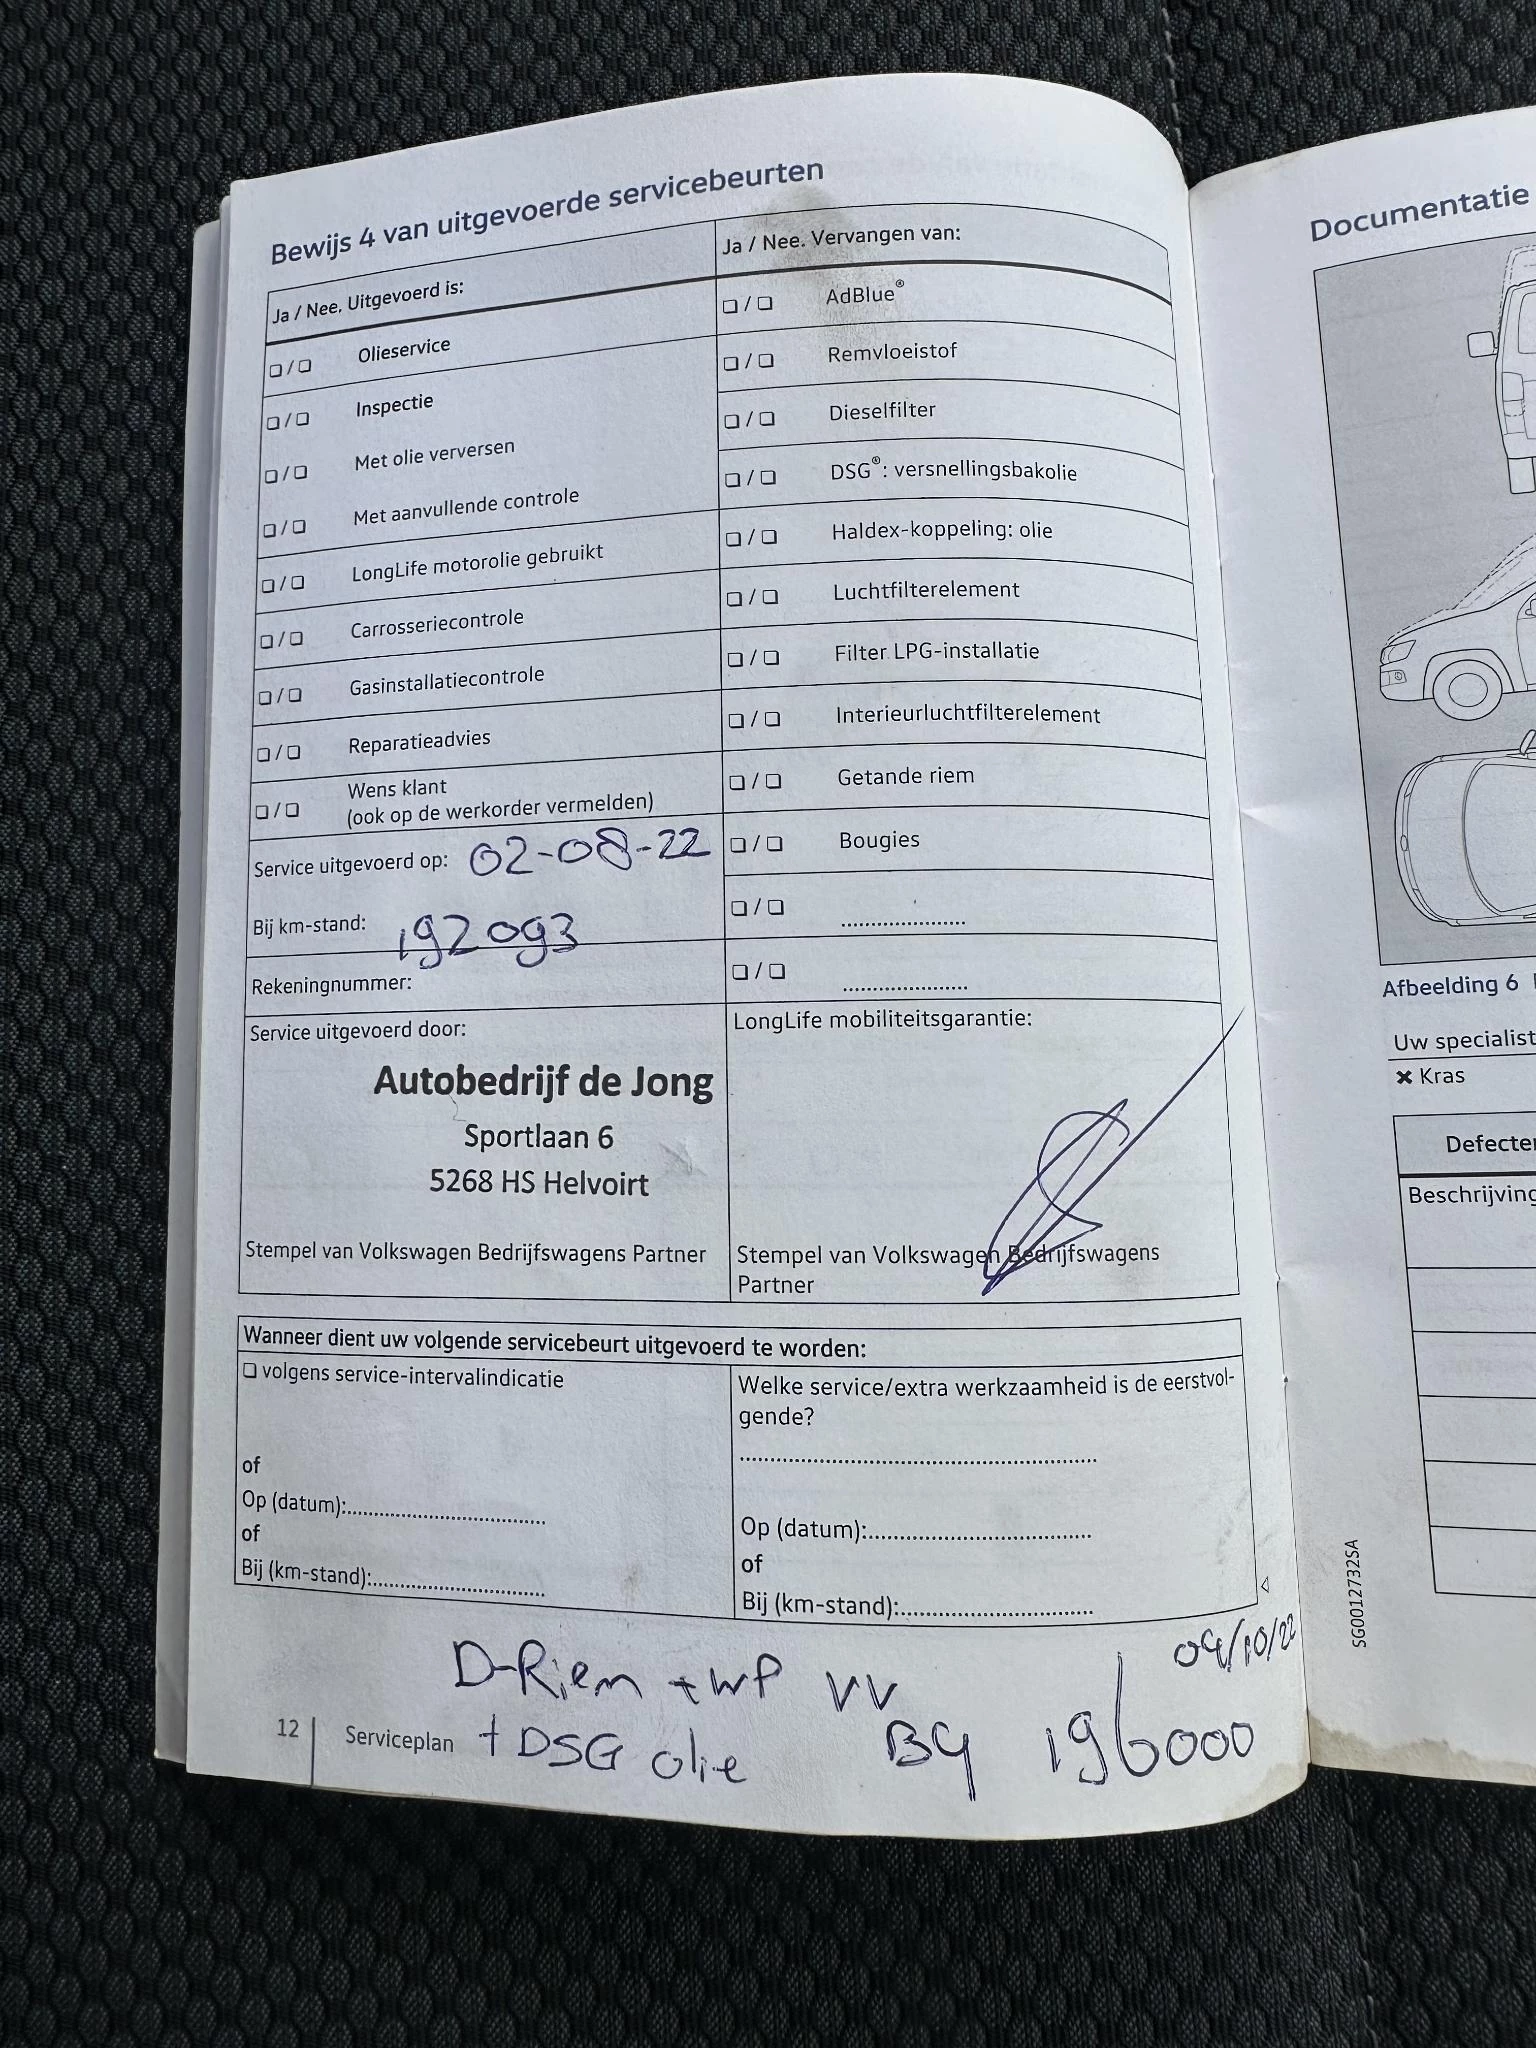 Bewijs 4 van uitgevoerde servicebeurten
Ja / Nee. Uitgevoerd is:
❏ / ❏ Olieservice
❏ / ❏ Inspectie
❏ / ❏ Met olie verversen
❏ / ❏ Met aanvullende controle
❏ / ❏ LongLife motorolie gebruikt
❏ / ❏ Carrosseriecontrole
❏ / ❏ Gasinstallatiecontrole
❏ / ❏ Reparatieadvies
❏ / ❏ Wens klant
(ook op de werkorder vermelden)
Service uitgevoerd op: 02-08-22
Bij km-stand: 192093
Rekeningnummer:
Ja / Nee. Vervangen van:
❏ / ❏ AdBlue®
❏ / ❏ Remvloeistof
❏ / ❏ Dieselfilter
❏ / ❏ DSG®: versnellingsbakolie
❏ / ❏ Haldex-koppeling: olie
❏ / ❏ Luchtfilterelement
❏ / ❏ Filter LPG-installatie
❏ / ❏ Interieurluchtfilterelement
❏ / ❏ Getande riem
❏ / ❏ Bougies
❏ / ❏ ....................
❏ / ❏ ....................
Service uitgevoerd door:
Autobedrijf de Jong
Sportlaan 6
5268 HS Helvoirt
Stempel van Volkswagen Bedrijfswagens Partner
LongLife mobiliteitsgarantie:
Stempel van Volkswagen Bedrijfswagens
Partner
Wanneer dient uw volgende servicebeurt uitgevoerd te worden:
❏ volgens service-intervalindicatie
of
Op (datum):................................
of
Bij (km-stand):............................
Welke service/extra werkzaamheid is de eerstvol-
gende?
..........................................................
Op (datum):....................................
of
Bij (km-stand):...............................
D-Riem + WP VV
+ DSG olie
04/10/22
BY 196000
12 Serviceplan
Documentatie
Afbeelding 6
Uw specialist
✖ Kras
Beschrijving
SG0012732SA